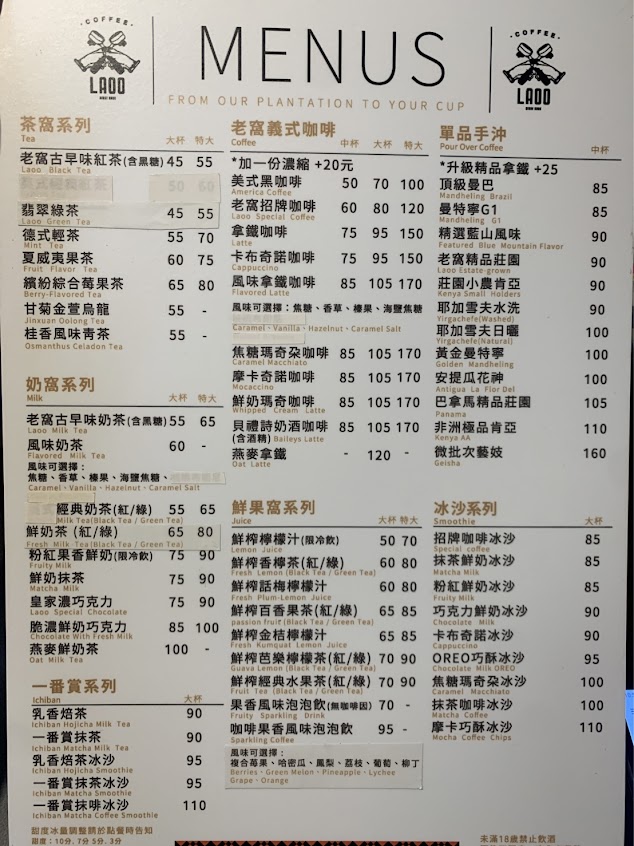 ·COFFEE·
LAOO
MENUS
FROM OUR PLANTATION TO YOUR CUP
·COFFEE·
LAOO
茶窩系列
Tea
大杯 特大
老窩古早味紅茶(含黑糖) 45 55
Laoo Black Tea
翡翠綠茶 45 55
Laoo Green Tea
德式輕茶 55 70
Mint Tea
夏威夷果茶 60 75
Fruit Flavor Tea
繽紛綜合莓果茶 65 80
Berry-Flavored Tea
甘菊金萱烏龍 55 -
Jinxuan Oolong Tea
桂香風味青茶 55 -
Osmanthus Celadon Tea
奶窩系列
Milk
大杯 特大
老窩古早味奶茶(含黑糖) 55 65
Laoo Milk Tea
風味奶茶 60 -
Flavored Milk Tea
風味可選擇：
焦糖、香草、榛果、海鹽焦糖、
Caramel、Vanilla、Hazelnut、Caramel Salt
經典奶茶(紅/綠) 55 65
Milk Tea(Black Tea / Green Tea)
鮮奶茶 (紅/綠) 65 80
Fresh Milk Tea(Black Tea / Green Tea)
粉紅果香鮮奶(限冷飲) 75 90
Fruity Milk
鮮奶抹茶 75 90
Matcha Milk
皇家濃巧克力 75 90
Laoo Special Chocolate
脆濃鮮奶巧克力 85 100
Chocolate With Fresh Milk
燕麥鮮奶茶 100 -
Oat Milk Tea
一番賞系列
Ichiban
大杯
乳香焙茶 90
Ichiban Hojicha Milk Tea
一番賞抹茶 90
Ichiban Matcha Milk Tea
乳香焙茶冰沙 95
Ichiban Hojicha Smoothie
一番賞抹茶冰沙 95
Ichiban Matcha Smoothie
一番賞抹啡冰沙 110
Ichiban Matcha Coffee Smoothie
甜度冰量調整請於點餐時告知
甜度：10分. 7分 5分. 3分
老窩義式咖啡
Coffee
中杯 大杯 特大
*加一份濃縮 +20元
美式黑咖啡 50 70 100
America Coffee
老窩招牌咖啡 60 80 120
Laoo Special Coffee
拿鐵咖啡 75 95 150
Latte
卡布奇諾咖啡 75 95 150
Cappuccino
風味拿鐵咖啡 85 105 170
Flavored Latte
風味可選擇：焦糖、香草、榛果、海鹽焦糖
Caramel、Vanilla、Hazelnut、Caramel Salt
焦糖瑪奇朵咖啡 85 105 170
Caramel Macchiato
摩卡奇諾咖啡 85 105 170
Mocaccino
鮮奶瑪奇咖啡 85 105 170
Whipped Cream Latte
貝禮詩奶酒咖啡 85 105 170
(含酒精) Baileys Latte
燕麥拿鐵 - 120 -
Oat Latte
鮮果窩系列
Juice
大杯 特大
鮮榨檸檬汁(限冷飲) 50 70
Lemon Juice
鮮榨香檸茶(紅/綠) 60 80
Fresh Lemon (Black Tea / Green Tea)
鮮榨話梅檸檬汁 60 80
Fresh Plum-Lemon Juice
鮮榨百香果茶(紅/綠) 65 85
passion fruit(Black Tea / Green Tea)
鮮榨金桔檸檬汁 65 85
Fresh Kumquat Lemon Juice
鮮榨芭樂檸檬茶(紅/綠) 70 90
Guava Lemon (Black Tea / Green Tea)
鮮榨經典水果茶(紅/綠) 70 90
Fruit Tea (Black Tea / Green Tea)
果香風味泡泡飲(無咖啡因) 70 -
Fruity Sparkling Drink
咖啡果香風味泡泡飲 95 -
Sparkling Coffee
風味可選擇：
複合莓果、哈密瓜、鳳梨、荔枝、葡萄、柳丁
Berries、Green Melon、Pineapple、Lychee
Grape、Orange
單品手沖
Pour Over Coffee
中杯
*升級精品拿鐵 +25
頂級曼巴 85
Mandheling Brazil
曼特寧G1 85
Mandheling G1
精選藍山風味 90
Featured Blue Mountain Flavor
老窩精品莊園 90
Laoo Estate-grown
莊園小農肯亞 90
Kenya Small Holders
耶加雪夫水洗 90
Yirgachefe(Washed)
耶加雪夫日曬 100
Yirgachefe(Natural)
黃金曼特寧 100
Golden Mandheling
安提瓜花神 100
Antigua La Flor Del
巴拿馬精品莊園 105
Panama
非洲極品肯亞 110
Kenya AA
微批次藝妓 160
Geisha
冰沙系列
Smoothie
大杯
招牌咖啡冰沙 85
Special coffee
抹茶鮮奶冰沙 85
Matcha Milk
粉紅鮮奶冰沙 85
Fruity Milk
巧克力鮮奶冰沙 90
Chocolate Milk
卡布奇諾冰沙 90
Cappuccino
OREO巧酥冰沙 95
Chocolate Milk OREO
焦糖瑪奇朵冰沙 100
Caramel Macchiato
抹茶咖啡冰沙 100
Matcha Coffee
摩卡巧酥冰沙 110
Mocha Coffee Chips
未滿18歲禁止飲酒